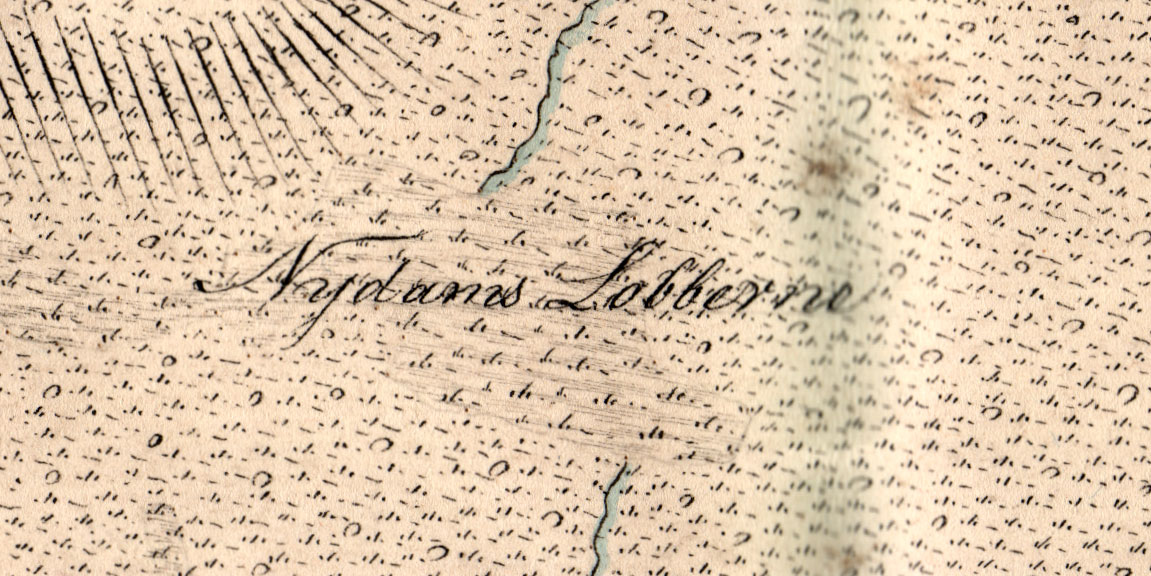 Nydams Lobberne